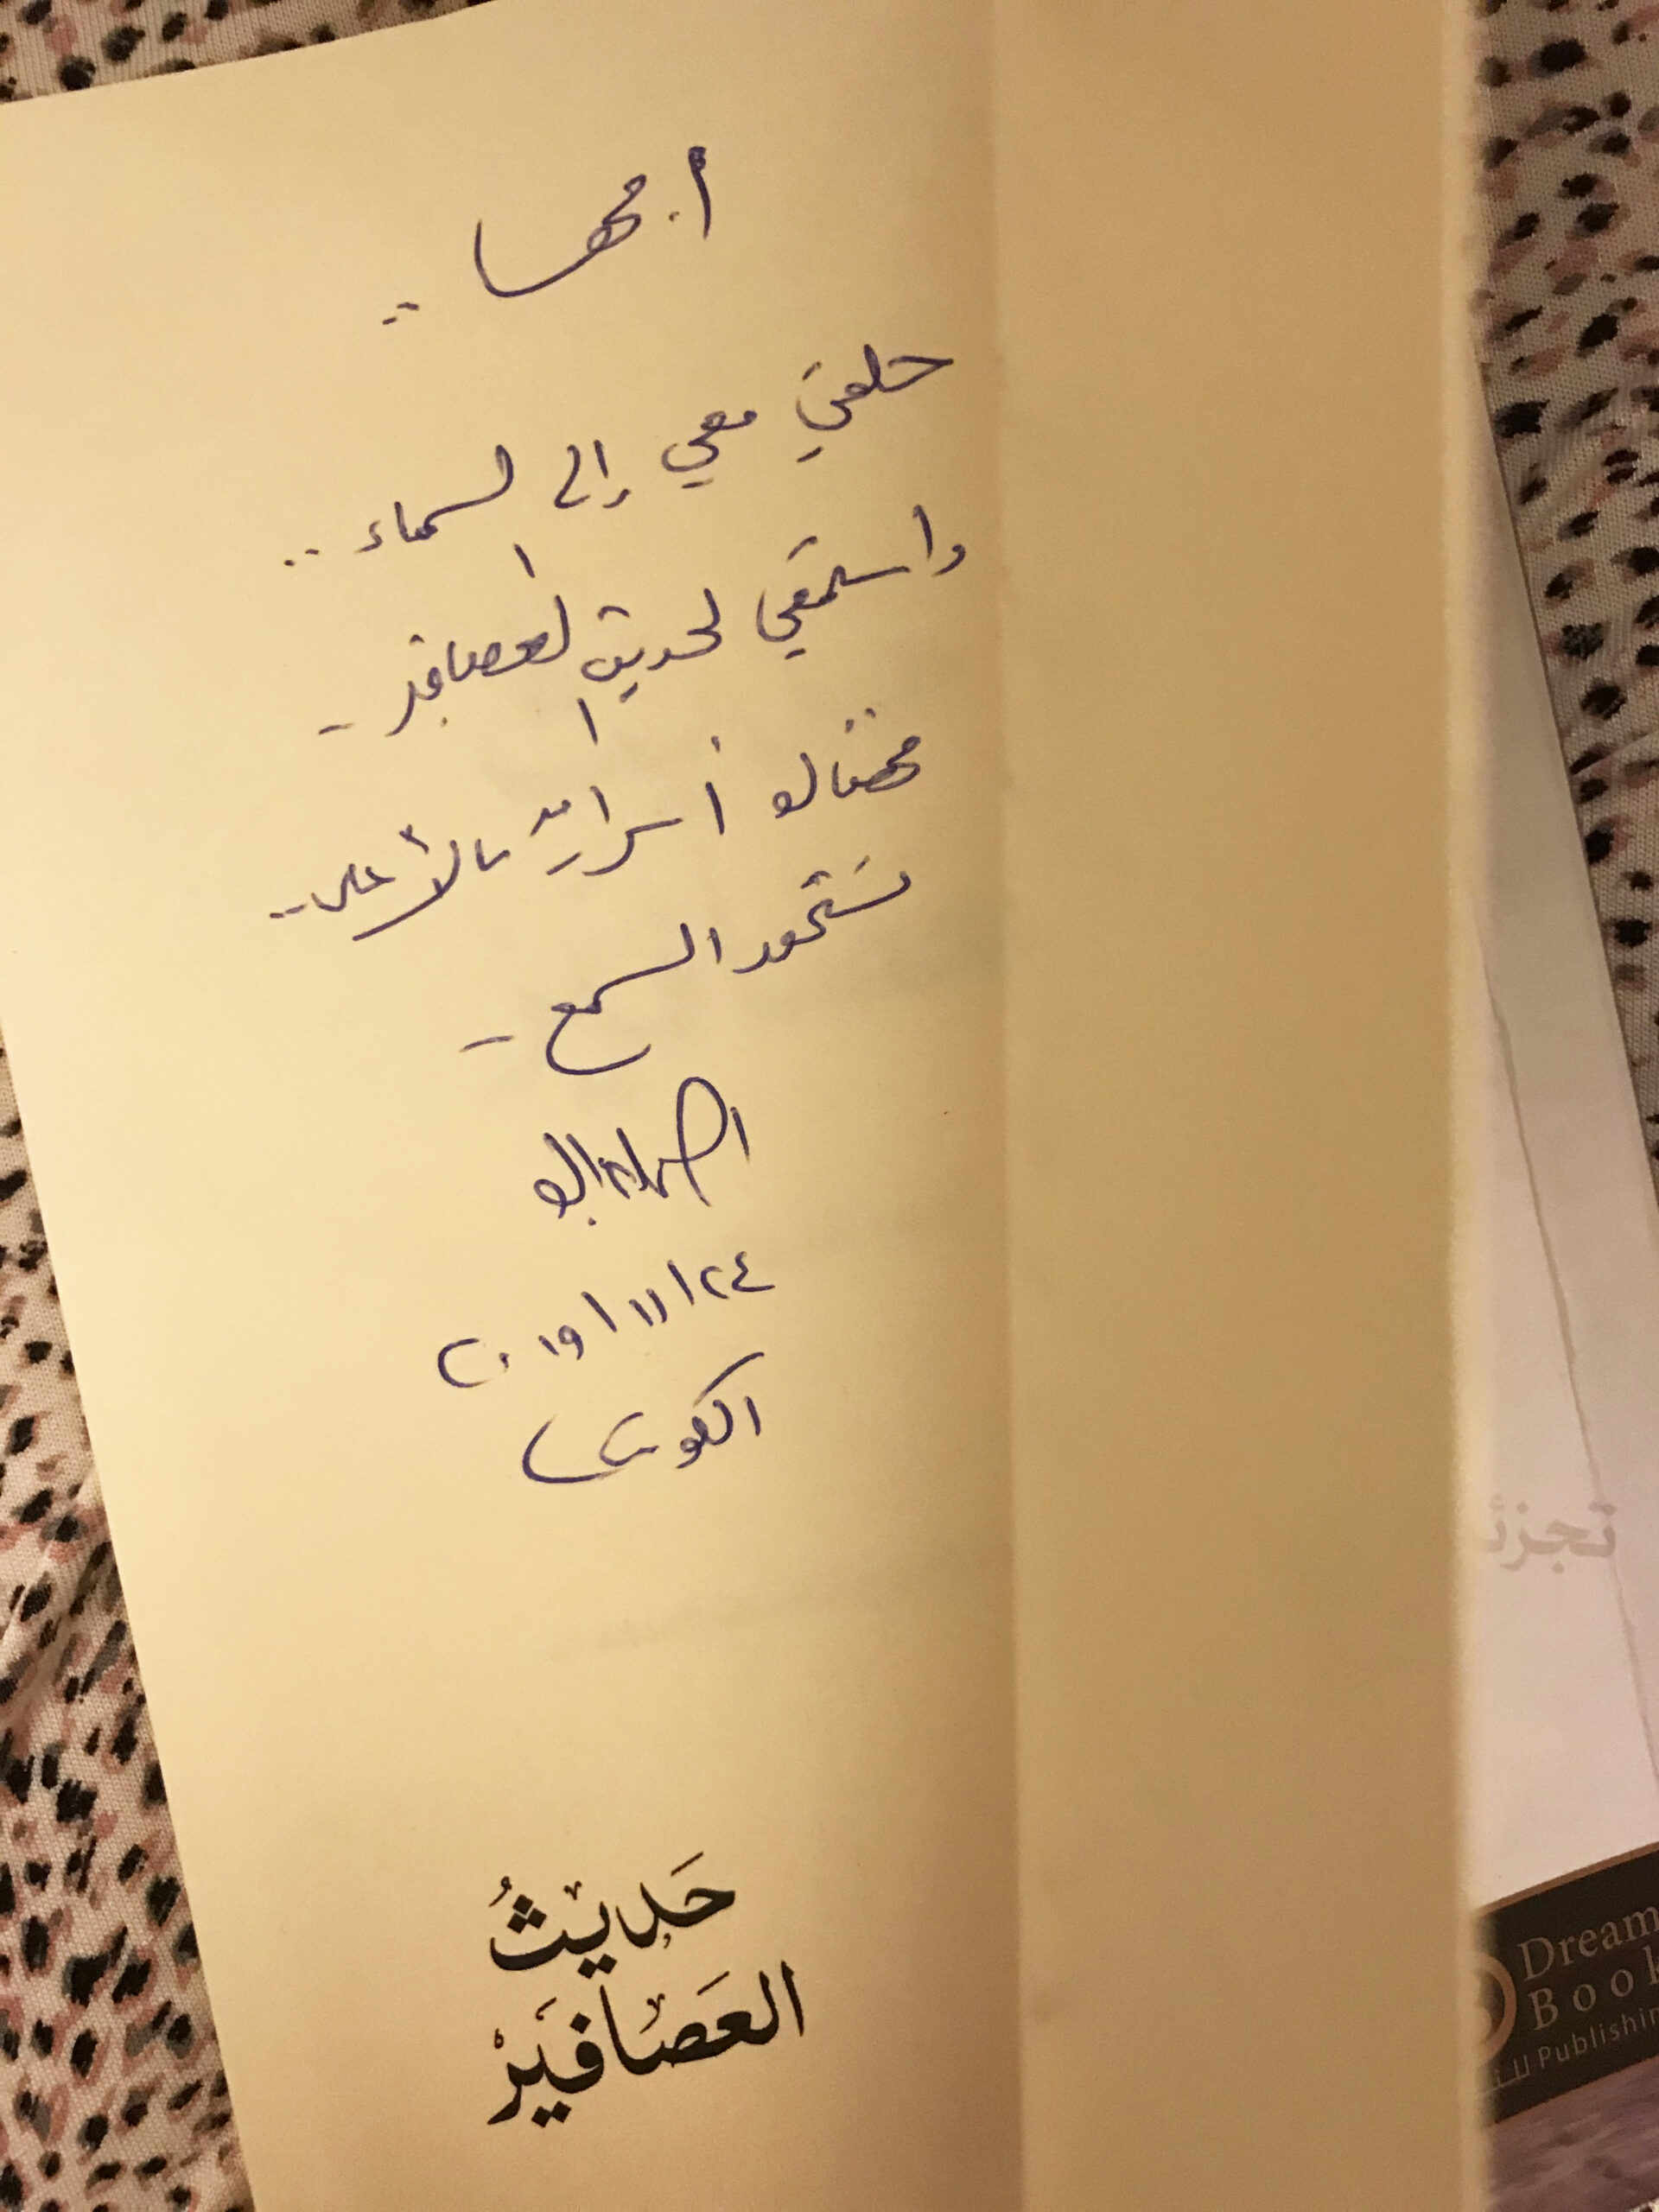 أ. مها ..
حلقي معي إلى السماء ..
واستمعي لحديث العصافير ..
فهناك أسرار بالأعلى ..
تستحق السمع ..
٢٤ / ١١ / ٢٠١٩
الكويت
حَديثُ
العَصَافَيرْ
تجزئ
Dream
Book
Publishin